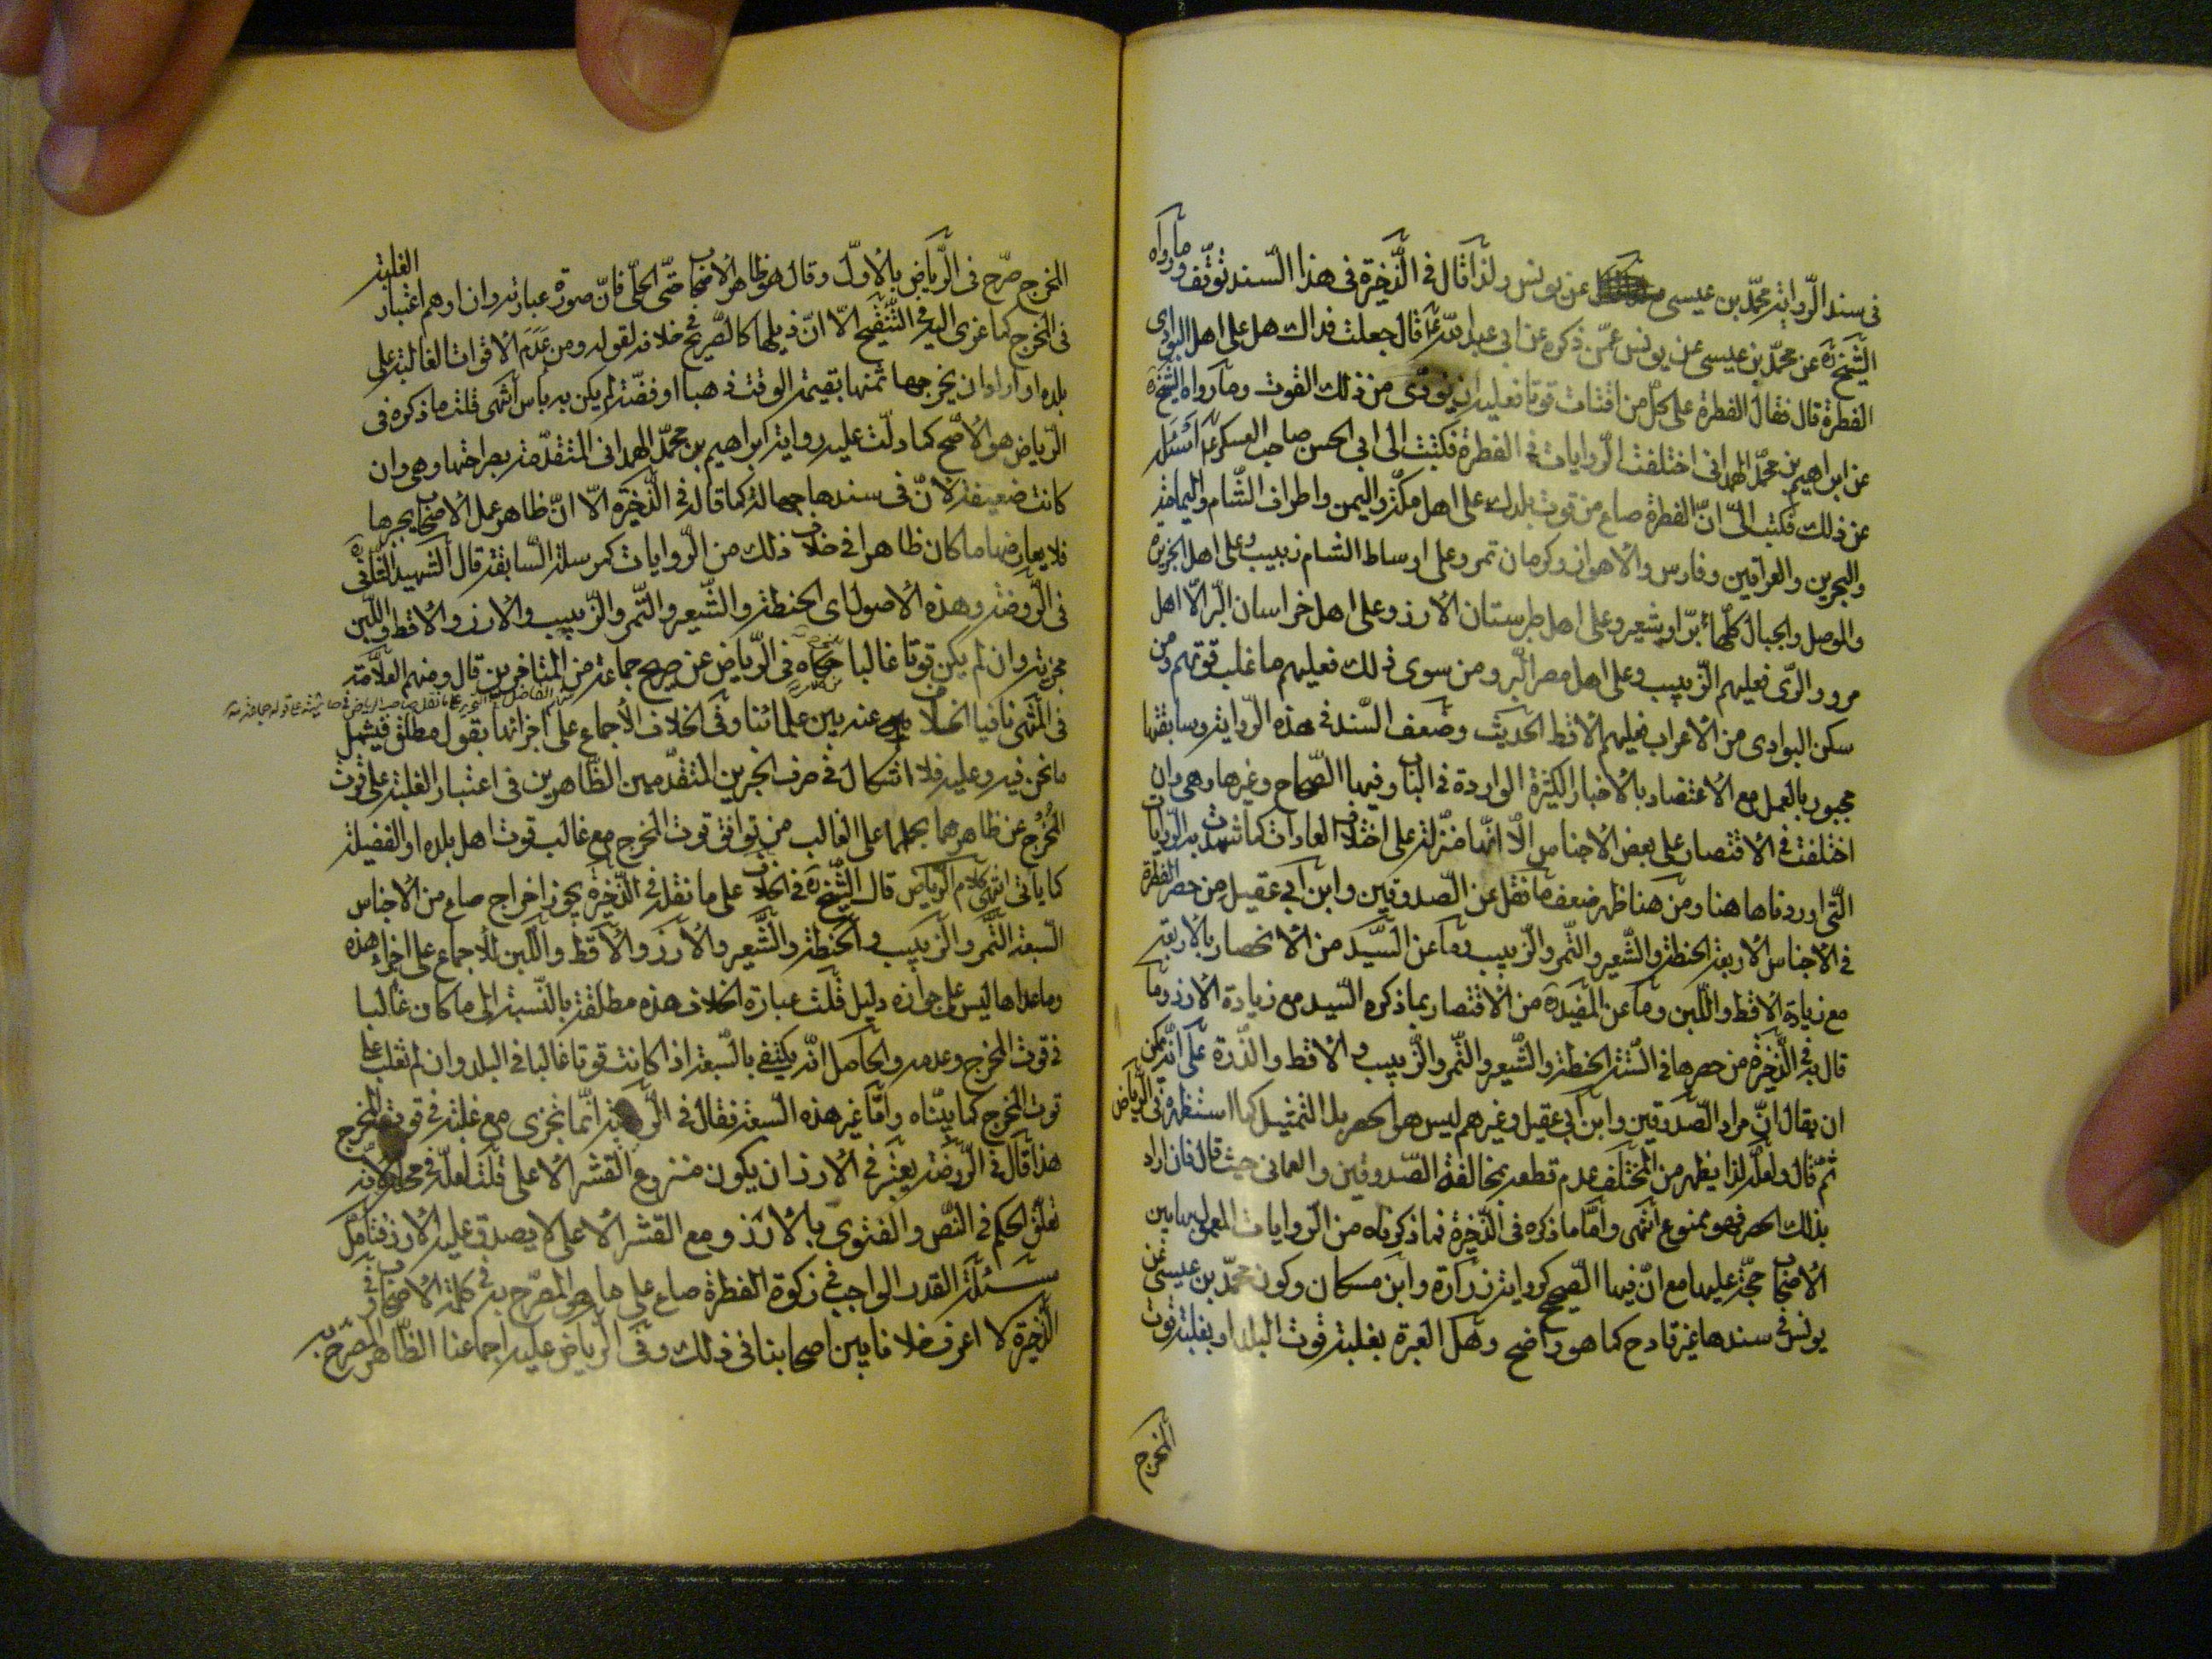 في سند الرواية محمد بن عيسى عن يونس ولذا قال في الذخيرة في هذا السند توقف وما رواه
الشيخ ره عن محمد بن عيسى عن يونس عمن ذكره عن ابي عبد الله ع قال جعلت فداك هل على اهل البوادى
الفطرة قال فقال الفطرة على كل من اقتات قوتا فعليه ان يؤدى من ذلك القوت وما رواه الشيخ ره
عن ابراهيم بن محمد الهمدانى اختلفت الروايات في الفطرة فكتبت الى ابي الحسن صاحب العسكر ع اسئله
عن ذلك فكتب الىّ ان الفطرة صاع من قوت بلدك على اهل مكة واليمن واطراف الشام واليمامة
والبحرين والعراقين وفارس والاهواز وكرمان تمر وعلى اوساط الشام زبيب وعلى اهل الجزيرة
والموصل والجبال كلها برّ او شعير وعلى اهل طبرستان الارز وعلى اهل خراسان البرّ الّا اهل
مرو والرّى فعليهم الزبيب وعلى اهل مصر البر ومن سوى ذلك فعليهم ما غلب قوتهم ومن
سكن البوادى من الاعراب فعليهم الاقط الحديث وضعف السند في هذه الرواية وسابقتها
مجبور بالعمل مع الاعتضاد بالاخبار الكثيرة الواردة في الباب وفيها الصحاح وغيرها وهى وان
اختلفت في الاقتصار على بعض الاجناس الّا انها منزلة على اختلاف العادات كما تشهد به الروايات
التى اوردناها هنا ومن هنا ظهر ضعف ما نقل عن الصدوقين وابن ابي عقيل من حصر الفطرة
في الاجناس الاربعة الحنطة والشعير والتمر والزبيب وما عن السيد من الانحصار بالاربعة
مع زيادة الاقط واللبن وما عن المفيد ره من الاقتصار بما ذكره السيد مع زيادة الارز وما
قال به في الذخيرة من حصرها في الستة الحنطة والشعير والتمر والزبيب والاقط والذرة على انه يمكن
ان يقال ان مراد الصدوقين وابن ابي عقيل وغيرهم ليس هو الحصر بل التمثيل كما استظهره في الرياض
ثم قال ولعله لذا يظهر من المختلف عدم قطعه بمخالفة الصدوقين والعمانى حيث قال فان اراد
بذلك الحصر فهو ممنوع انتهى واما ما ذكره في الذخيرة فما ذكرناه من الروايات المعول بها بين
الاصحاب حجة عليها مع ان فيها الصحيح كرواية زرارة وابن مسكان وكون محمد بن عيسى عن
يونس في سندها غير قادح كما هو واضح وهل العبرة بغلبة قوت البلد او بغلبة قوت
المخرج
المخرج صرّح في الرياض بالاول وقال هو ظاهر الاصحاب حتى الحلى فان صورة عبارته وان اوهم اعتبار الغلبة
في المخرج كما عزى اليه في التنقيح الّا ان ذيلها كالصريح في خلافه لقوله ومن عدم الاقوات الغالبة على
بلده او اراد ان يخرجها ثمنها بقيمة الوقت ذهبا او فضة لم يكن به باس انتهى قلت ما ذكره في
الرياض هو الاصح كما دلت عليه رواية ابراهيم بن محمد الهمدانى المتقدمة بصراحتها وهى وان
كانت ضعيفة لان في سندها جهالة كما قاله في الذخيرة الّا ان ظاهر عمل الاصحاب يجبرها
فلا يعارضها ما كان ظاهرا في خلاف ذلك من الروايات كمرسلة السابقة قال الشهيد الثانى ره
في الروضة وهذه الاصول اى الحنطة والشعير والتمر والزبيب والارز والاقط واللبن
مجزية وان لم يكن قوتا غالبا حكاه في الرياض عن صريح جماعة من المتاخرين قال ومنهم العلامة
في المنتهى نافيا الخلاف عنه بين علمائنا وفي الخلاف الاجماع على اجزائها بقول مطلق فيشمل
ما نحن فيه وعليه فلا اشكال في صرف الخبرين المتقدمين الظاهرين في اعتبار الغلبة على قوت
المخرج عن ظاهرهما بحملهما على الغالب من توافق قوت المخرج مع غالب قوت اهل بلده او الفضيلة
كما ياتى انتهى كلام الرياض قال الشيخ ره في الخلاف على ما نقله في الذخيرة يجوز اخراج صاع من الاجناس
السبعة التمر والزبيب والحنطة والشعير والارز والاقط واللبن للاجماع على اجزاء هذه
وما عداها ليس على جوازه دليل قلت عبارة الخلاف هذه مطلقة بالنسبة الى ما كان غالبا
في قوت المخرج وعدمه والحاصل انه يكتفى بالسبعة اذا كانت قوتا غالبا في البلد وان لم تغلب على
قوت المخرج كما بيناه وامّا غير هذه السبعة فقال في الروضة انما تجزى مع غلبته في قوت المخرج
هذا قال في الروضة يعتبر في الارز ان يكون منزوع القشر الاعلى قلت لعله في محله لانه
تعلق الحكم في النص والفتوى بالارز ومع القشر الاعلى لا يصدق عليه الارز فتامل
مسئلة القدر الواجب في زكوة الفطرة صاع على ما هو المصرح به في كلمة الاصحاب في
الذخيرة لا اعرف خلافا بين اصحابنا في ذلك وفي الرياض عليه اجماعنا الظاهر المصرح به